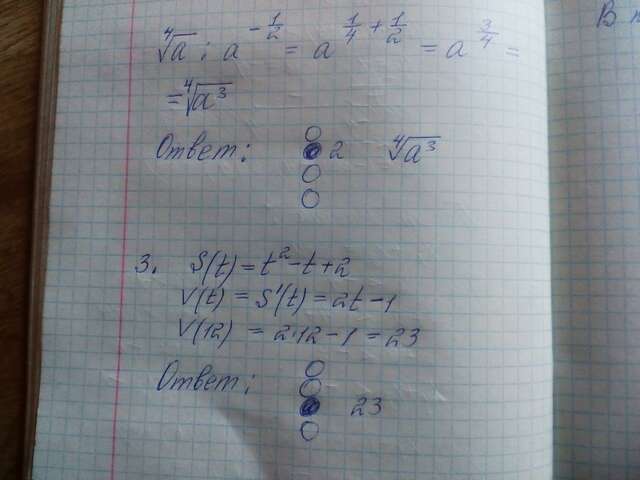 В п
⁴√a : a^(-1/2) = a^(1/4 + 1/2) = a^(3/4) =
= ⁴√a³
Ответ: 2 ⁴√a³
3. S(t) = t² - t + 2
V(t) = S'(t) = 2t - 1
V(12) = 2·12 - 1 = 23
Ответ: 23